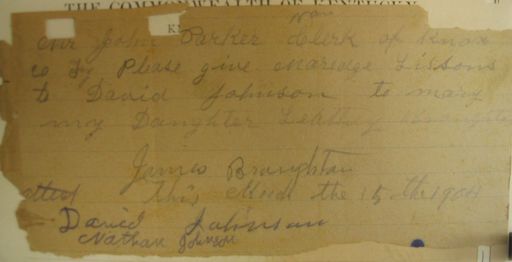 THE COMMONWEALTH OF KENTUCKY
Mr John Parker Clerk of Knox
co Ky Please give Maredge Lissons
to David Johnson to mary
my Daughter Leathey Broughton
James Broughton
atted this March the 15 the 1904
David Johnson
Nathan Johnson
1